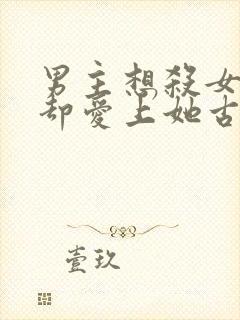 男主想殺女
却愛上她古
壹玖